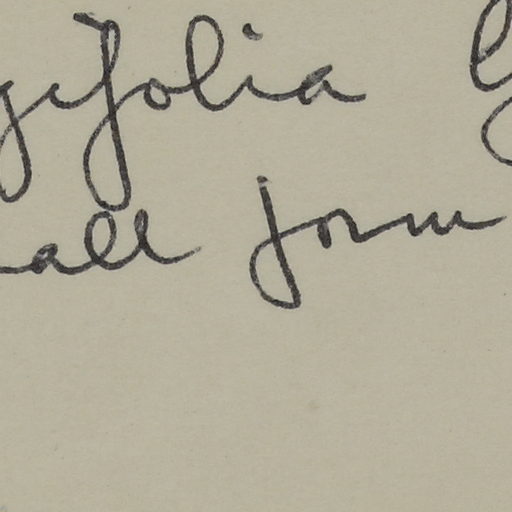 gifolia
all form